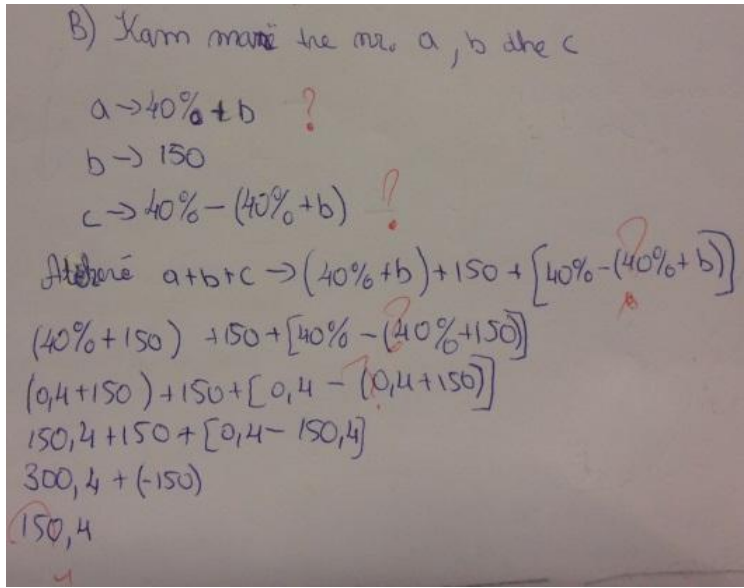 B) Kam marrë tre nr. a, b dhe c
a → 40% + b ?
b → 150
c → 40% - (40% + b) ?
Atëherë a+b+c → (40% + b) + 150 + [40% - (40% + b)] ?
(40% + 150) + 150 + [40% - (40% + 150)] ?
(0,4 + 150) + 150 + [0,4 - (0,4 + 150)] ?
150,4 + 150 + [0,4 - 150,4]
300,4 + (-150)
150,4